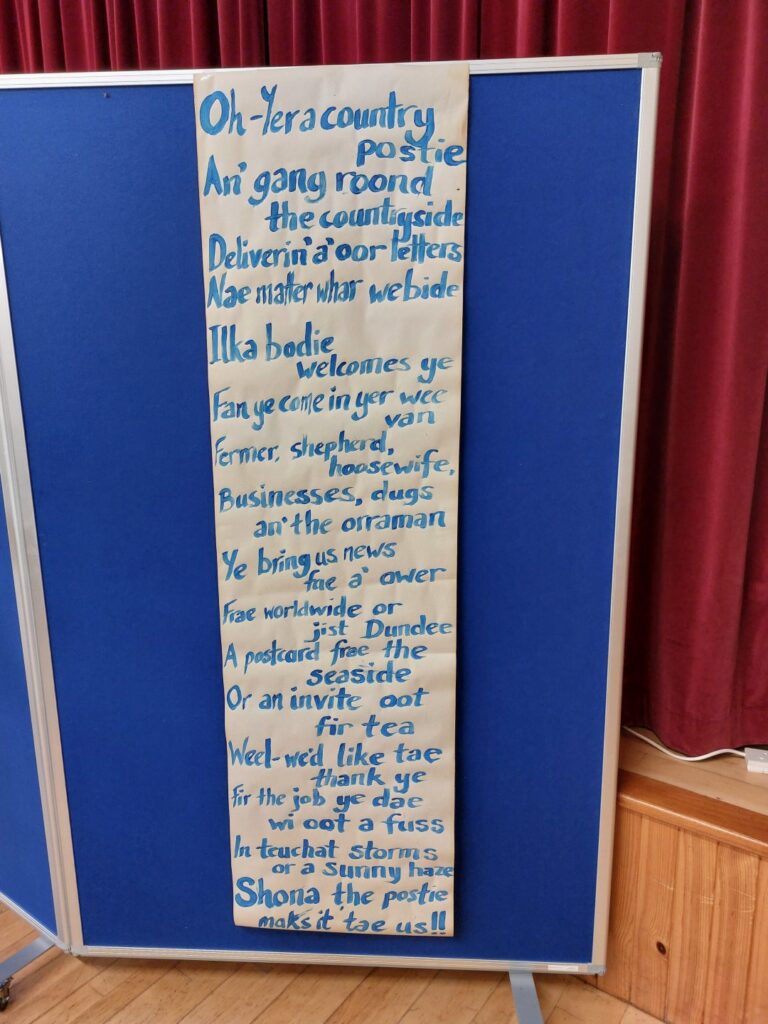 Oh-Yer a country
postie
An' gang roond
the countryside
Deliverin' a' oor letters
Nae matter whar we bide
Ilka bodie
welcomes ye
Fan ye come in yer wee
van
Fermer, shepherd,
hoosewife,
Businesses, dugs
an' the orraman
Ye bring us news
fae a' ower
Frae worldwide or
jist Dundee
A postcard frae the
seaside
Or an invite oot
fir tea
Weel-we'd like tae
thank ye
Fir the job ye dae
wi oot a fuss
In teuchat storms
or a Sunny haze
Shona the postie
maks it tae us!!